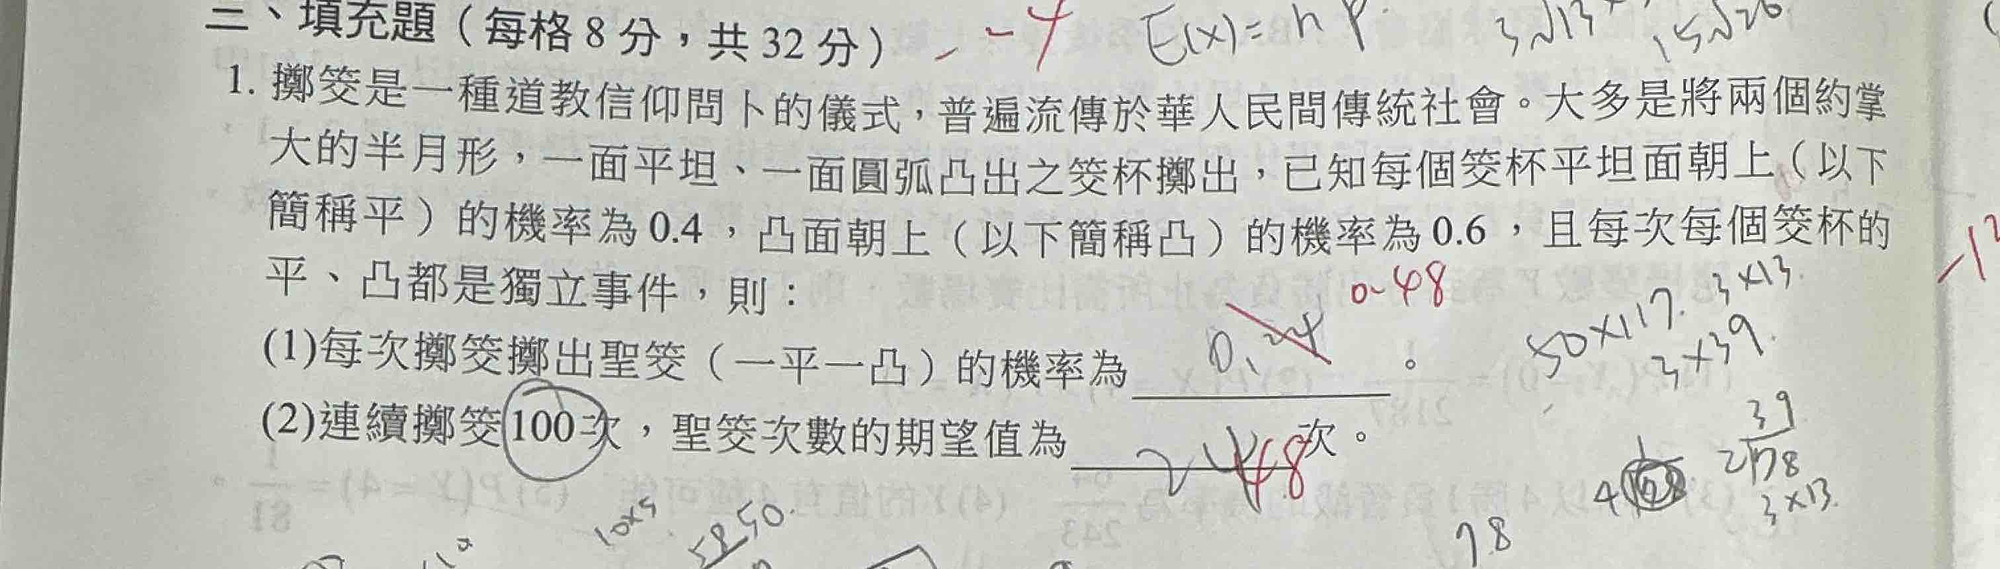 三、填充題(每格8分,共32分) -4 E(x)=np.
1. 擲筊是一種道教信仰問卜的儀式,普遍流傳於華人民間傳統社會。大多是將兩個約掌
大的半月形,一面平坦、一面圓弧凸出之筊杯擲出,已知每個筊杯平坦面朝上(以下
簡稱平)的機率為0.4,凸面朝上(以下簡稱凸)的機率為0.6,且每次每個筊杯的
平、凸都是獨立事件,則: 0.48
(1)每次擲筊擲出聖筊(一平一凸)的機率為 0.24 。
50×117. 3×13.
3×39.
(2)連續擲筊100次,聖筊次數的期望值為 24 48 次。
39
2 78
3×13.
10×5
78